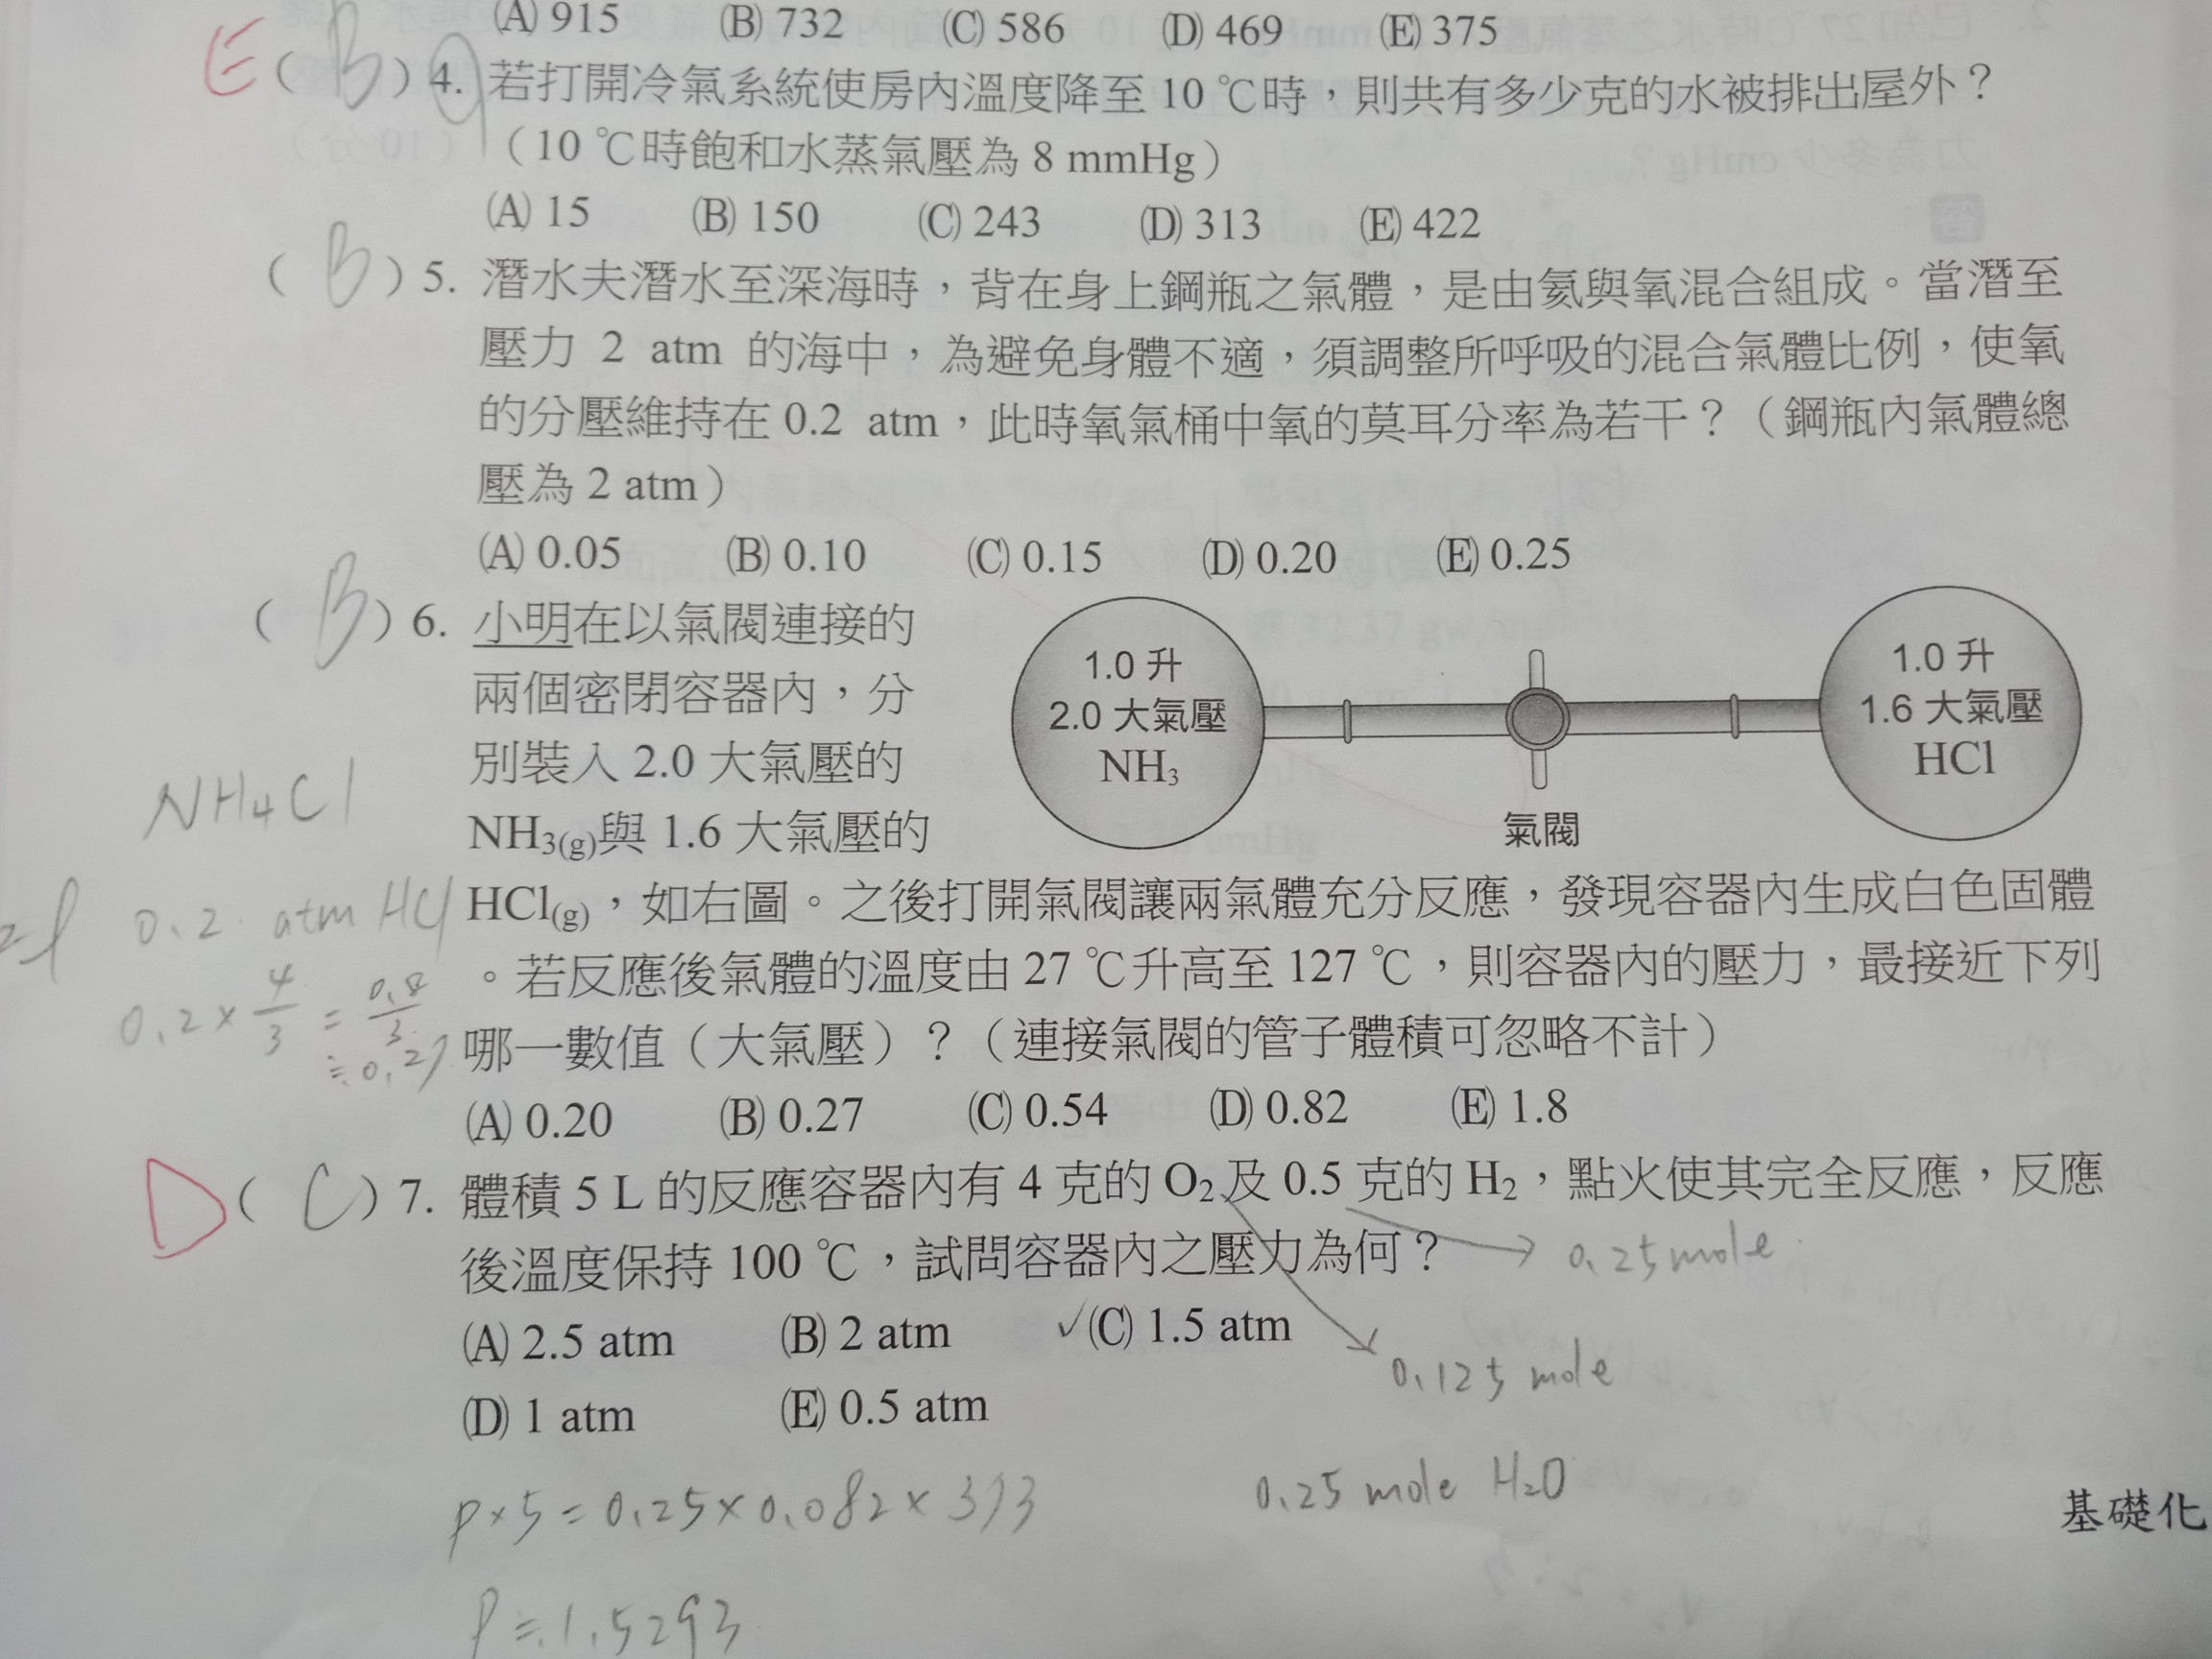 (A) 915 (B) 732 (C) 586 (D) 469 (E) 375
E ( B ) 4. 若打開冷氣系統使房內溫度降至 10 ℃時，則共有多少克的水被排出屋外？
（10 ℃時飽和水蒸氣壓為 8 mmHg）
(A) 15 (B) 150 (C) 243 (D) 313 (E) 422
( B ) 5. 潛水夫潛水至深海時，背在身上鋼瓶之氣體，是由氦與氧混合組成。當潛至
壓力 2 atm 的海中，為避免身體不適，須調整所呼吸的混合氣體比例，使氧
的分壓維持在 0.2 atm，此時氧氣桶中氧的莫耳分率為若干？（鋼瓶內氣體總
壓為 2 atm）
(A) 0.05 (B) 0.10 (C) 0.15 (D) 0.20 (E) 0.25
( B ) 6. 小明在以氣閥連接的
兩個密閉容器內，分
別裝入 2.0 大氣壓的
NH3(g)與 1.6 大氣壓的
HCl(g)，如右圖。之後打開氣閥讓兩氣體充分反應，發現容器內生成白色固體
。若反應後氣體的溫度由 27 ℃升高至 127 ℃，則容器內的壓力，最接近下列
哪一數值（大氣壓）？（連接氣閥的管子體積可忽略不計）
(A) 0.20 (B) 0.27 (C) 0.54 (D) 0.82 (E) 1.8
1.0 升
2.0 大氣壓
NH3
氣閥
1.0 升
1.6 大氣壓
HCl
NH4Cl
0.2 atm HCl
0.2 × 4/3 = 0.8/3
≒ 0.27
D ( C ) 7. 體積 5 L 的反應容器內有 4 克的 O2 及 0.5 克的 H2，點火使其完全反應，反應
後溫度保持 100 ℃，試問容器內之壓力為何？
0.25 mole
(A) 2.5 atm (B) 2 atm ✓(C) 1.5 atm
0.125 mole
(D) 1 atm (E) 0.5 atm
P×5 = 0.25×0.082×373
0.25 mole H2O
P≒1.5293
基礎化